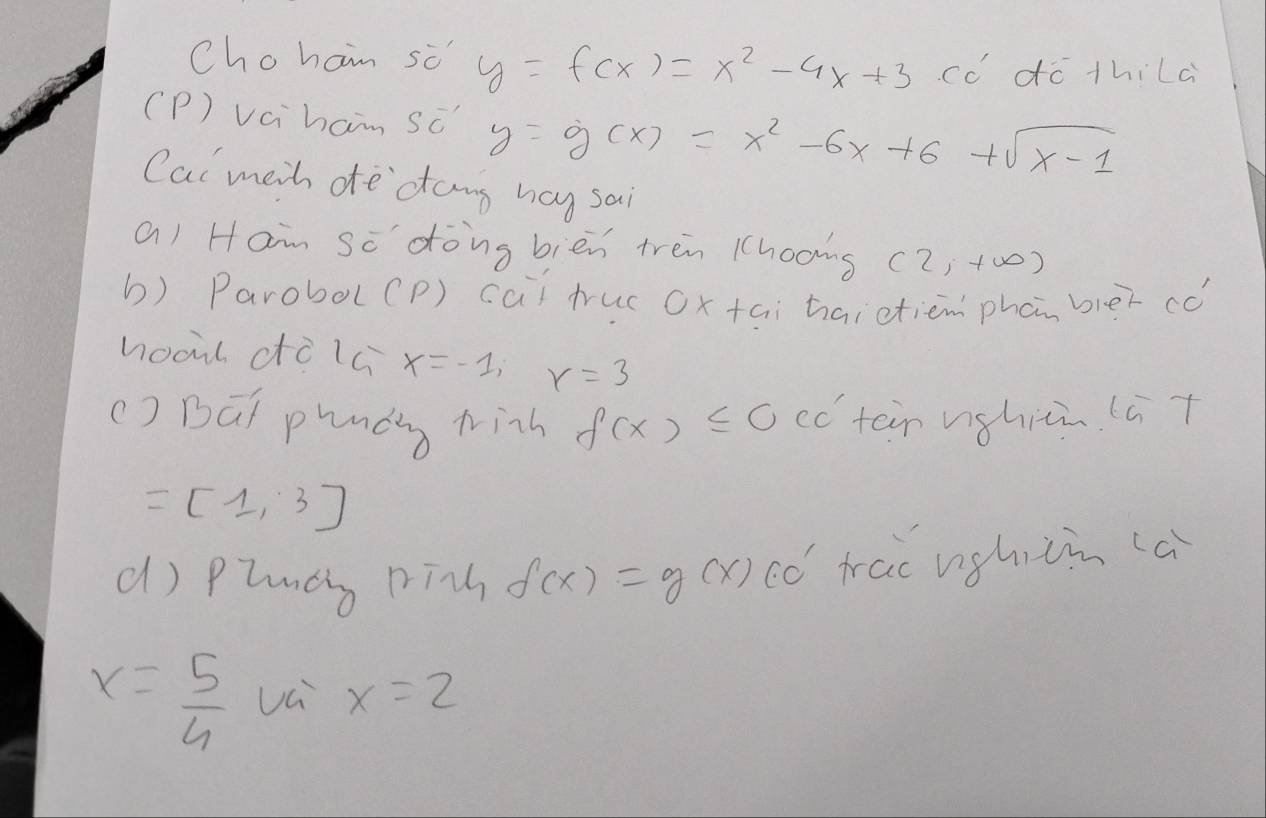 Cho hàm số y = f(x) = x² - 4x + 3 có đồ thị là
(P) và hàm số y = g(x) = x² - 6x + 6 + √(x - 1)
Các mệnh đề đúng hay sai
a) Hàm số đồng biến trên khoảng (2, +∞)
b) Parabol (P) cắt trục Ox tại hai điểm phân biệt có
hoành độ là x = -1, x = 3
c) Bất phương trình f(x) ≤ 0 có tập nghiệm là T
= [1, 3]
d) Phương trình f(x) = g(x) có các nghiệm là
x = 5/4 và x = 2